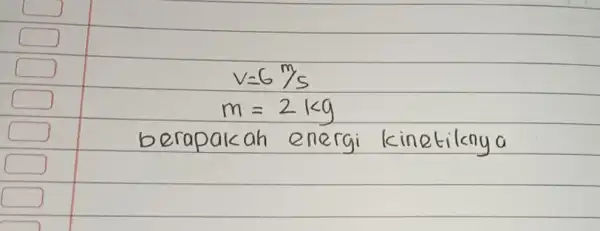 v=6 m/s
m = 2 kg
berapakah energi kinetiknya